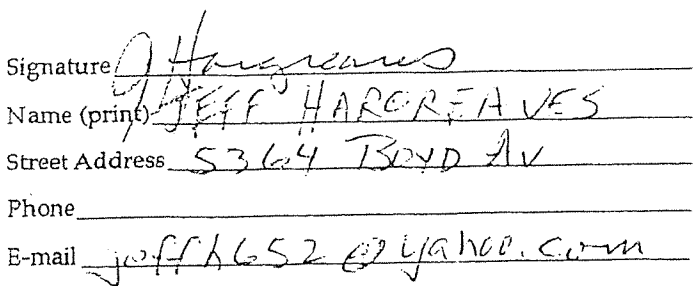 Signature J Hargreaves
Name (print) JEFF HARGREAVES
Street Address 5364 BOYD AV
Phone
E-mail jeffh652@yahoo.com